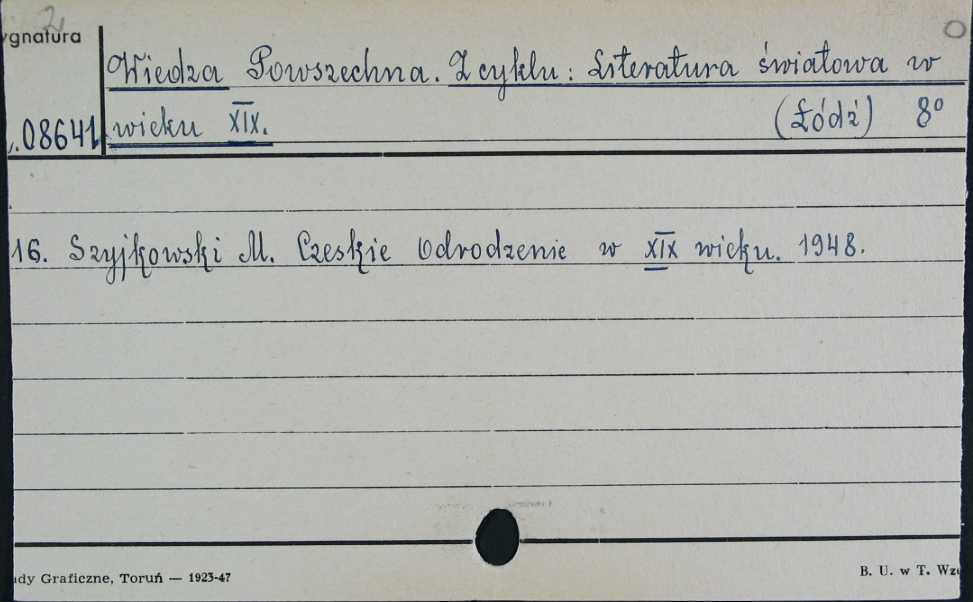 ygnatura
2
Wiedza Powszechna. Z cyklu: Literatura światowa w
08641 wieku XIX. (Łódź) 8°
16. Szyjkowski M. Czeskie Odrodzenie w XIX wieku. 1948.
dy Graficzne, Toruń — 1923-47
B. U. w T. Wz